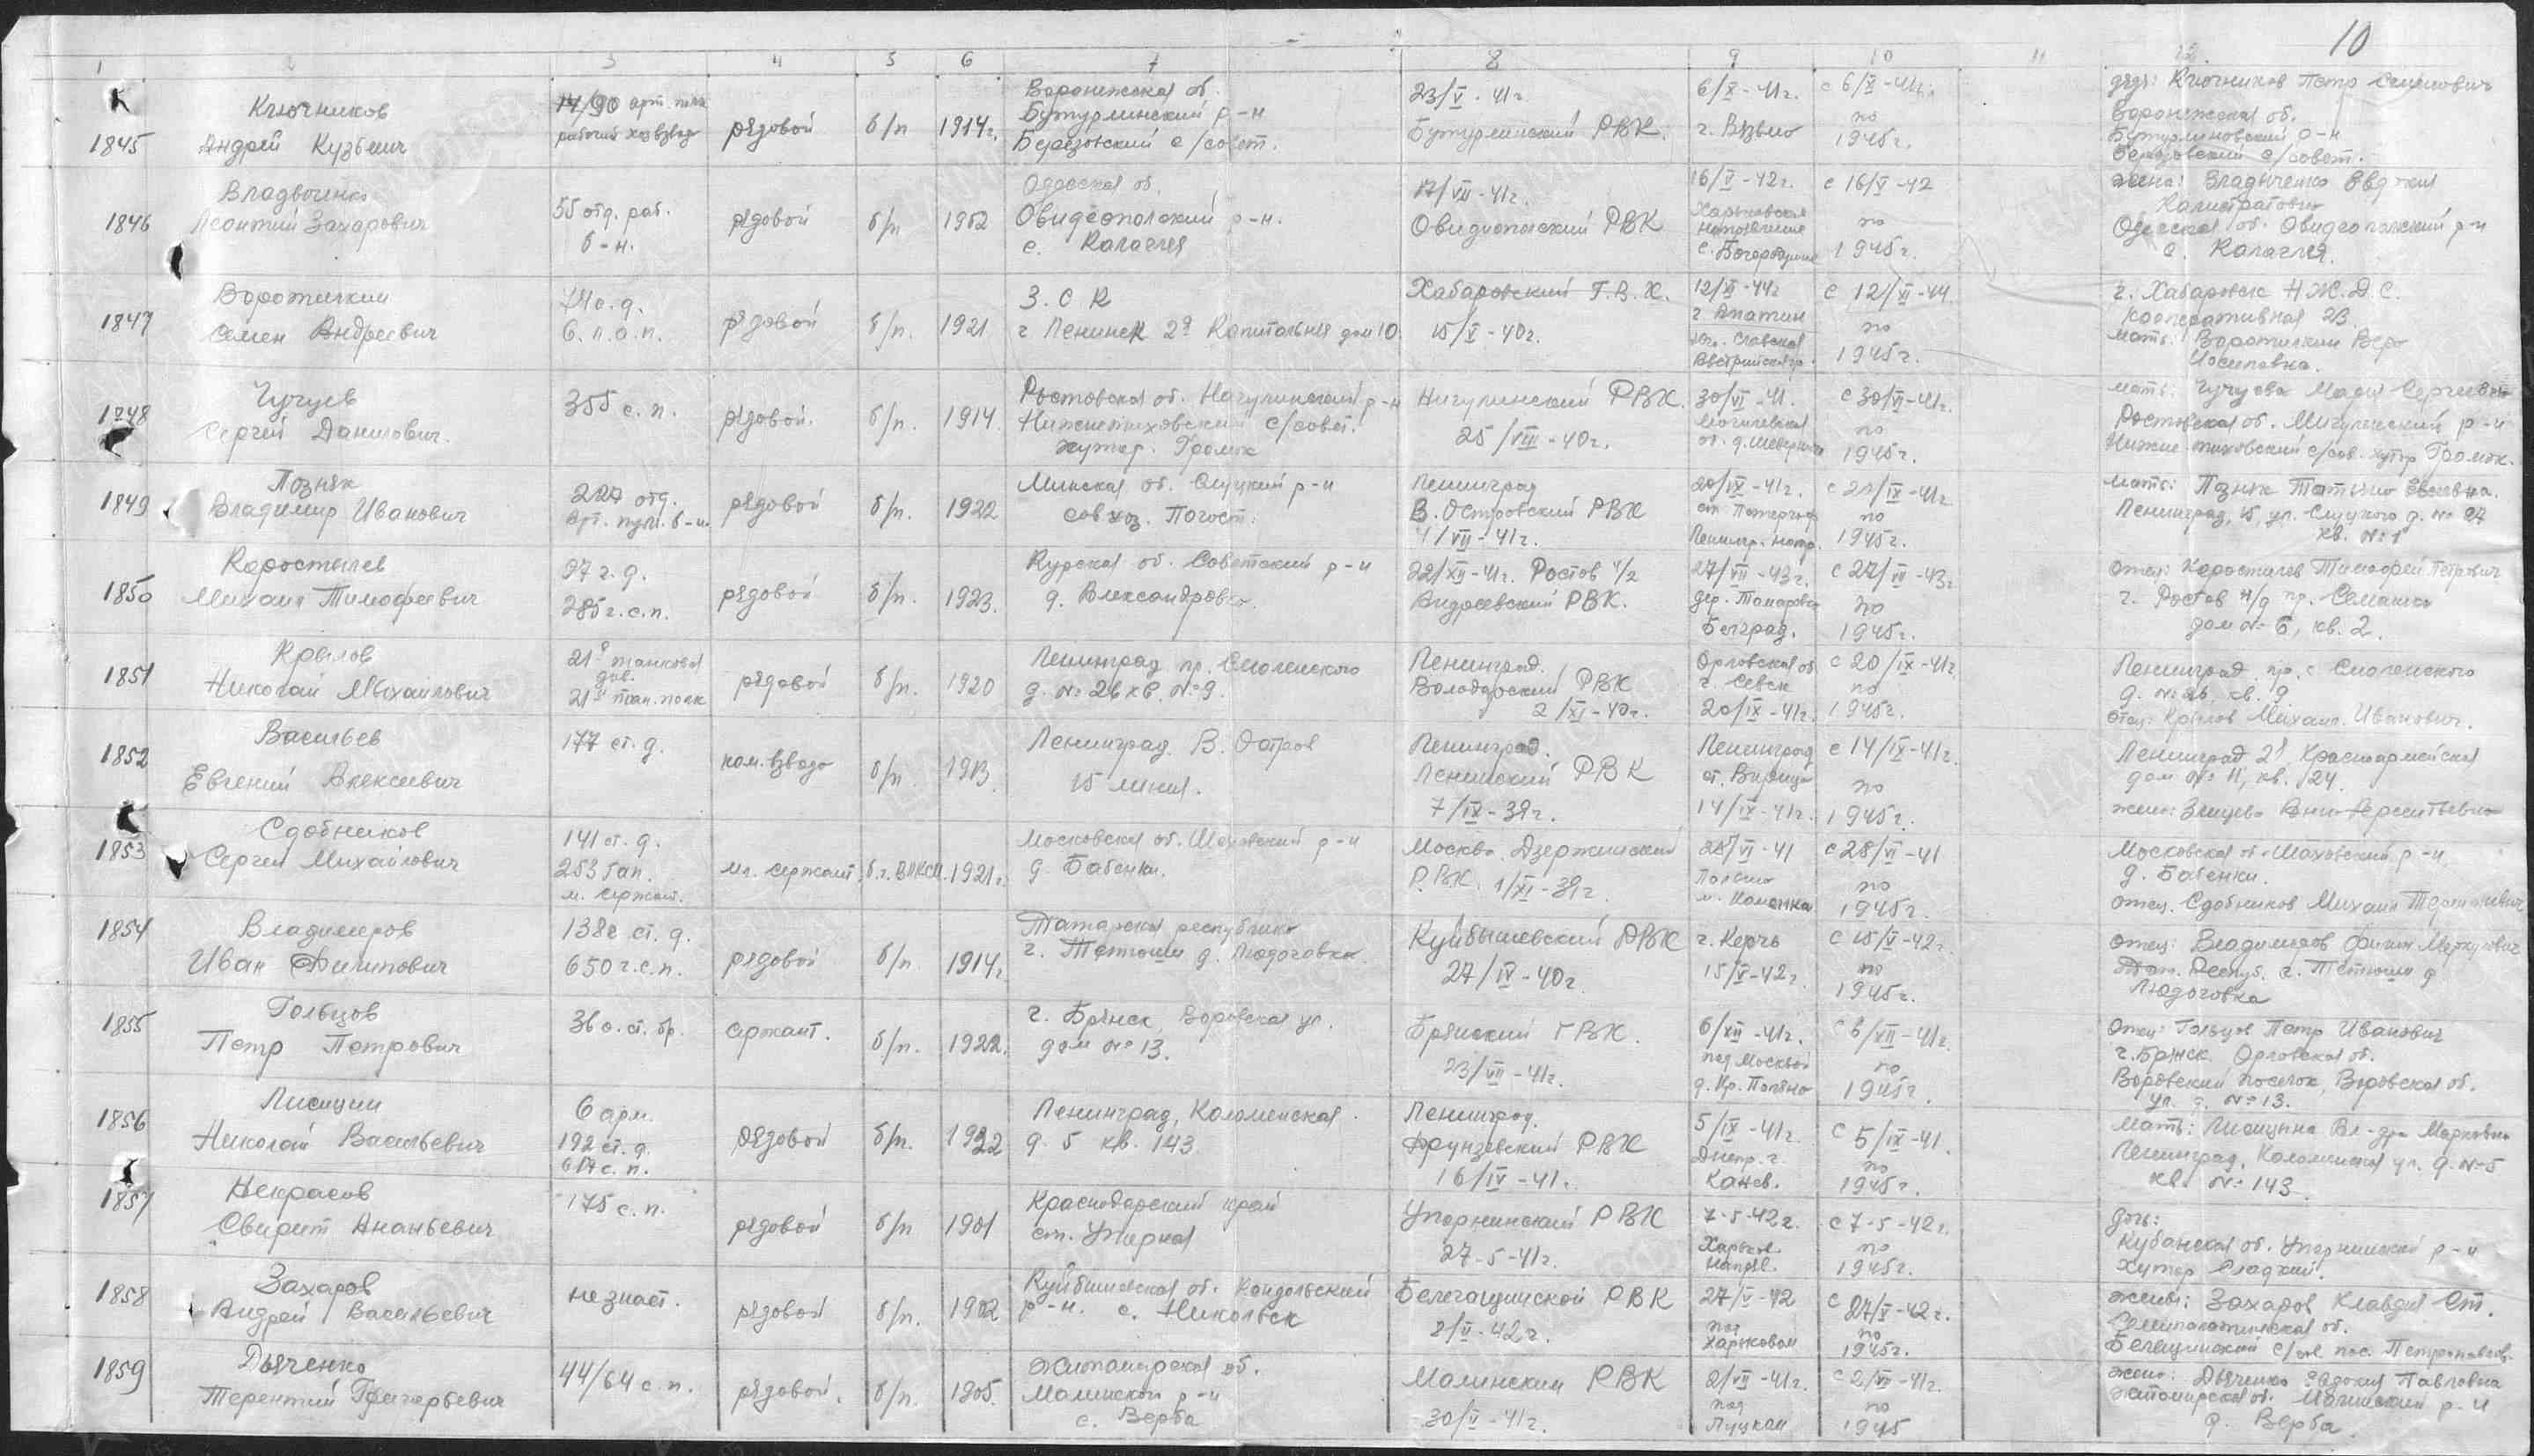 10
1 2 3 4 5 6 7 8 9 10 11 12
1845
Ключников
Андрей Кузьмич
17/90 арт. полк
рабочий хозвзвод
рядовой
б/п
1914г.
Воронежская об.
Бутурлинский р-н
Березовский с/совет.
23/V-41г.
Бутурлинский РВК.
6/X-41г.
г. Вязьма
с 6/X-41г.
по
1945г.
дядя: Ключников Петр Семенович
Воронежская об.
Бутурлиновский р-н
Березовский с/совет.
1846
Владыченко
Леонтий Захарович
55 отд. раб.
б-н.
рядовой
б/п
1902
Одесская об.
Овидеопольский р-н.
с. Калаглея
17/VII-41г.
Овидиопольский РВК
16/V-42г.
Харьковское
направление
с. Богородичне
с 16/V-42
по
1945г.
жена: Владыченко Евдокия
Калистратовн
Одесская об. Овидеопольский р-н
с. Калаглея.
1847
Воротилкин
Семен Андреевич
74 о.д.
6. п.о.п.
рядовой
б/п.
1921
З. С К
г Ленинск 2я Капитальная дом 10.
Хабаровский Г.В.К.
15/X-40г.
12/XI-44г
г Апатин
Юго-Славская
с 12/XI-44
по
1945г.
г. Хабаровск Н Ж.Д.С.
Кооперативная 23.
мать: Воротилкин Вера
Иосиповна.
1848
Чучуев
Сергей Данилович.
355 с.п.
рядовой.
б/п.
1914.
Ростовская об. Мигулинский р-н
Нижнетиховский с/совет.
хутор. Громок
Мигулинский РВК.
25/VIII-40г.
30/VI-41.
Могилевская
об. д.
с 30/VI-41г.
по
1945г.
мать: Чучуева Мария Сергеевн
Ростовская об. Мигулинский р-н
Нижне-тиховский с/сов. хутор Громок.
1849
Позняк
Владимир Иванович
227 отд.
Арт. пул. б-н
рядовой
б/п.
1922
Минская об. Слуцкий р-н
совхоз. Погост.
Ленинград
В. Островский РВК
4/VII-41г.
20/IX-41г.
ст Петергоф
Ленингр. напр.
с 20/IX-41г
по
1945г.
мать: Позняк Татьяна
Ленинград, 15, ул. Слуцкого д. № 27
кв. № 1
1850
Коростылев
Михаил Тимофеевич
97 г.д.
285 г.с.п.
рядовой
б/п.
1923.
Курская об. Советский р-н
д. Александровка.
22/XII-41г. Ростов н/д
Андреевский РВК.
27/VII-43г.
дер. Томаровка
Белград.
с 27/VII-43г
по
1945г.
отец: Коростылев Тимофей Петрович
г. Ростов н/д пр. Семашко
дом № 6, кв. 2.
1851
Крылов
Николай Михайлович
21я танковая
див.
21й тан. полк
рядовой
б/п.
1920
Ленинград пр. Смоленского
д. № 26 кв. № 9.
Ленинград.
Володарский РВК
2/XI-40г.
Орловская об
г. Севск
20/IX-41г.
с 20/IX-41г
по
1945г.
Ленинград. пр. с Смоленского
д. № 26. кв. 9
отец: Крылов Михаил. Иванович.
1852
Васильев
Евгений Алексеевич
177 ст. д.
ком. взвода
б/п.
1913.
Ленинград В. Остров
15 линия.
Ленинград.
Ленинский РВК
7/IX-39г.
Ленинград
ст. Вырица
14/IX-41г.
с 14/IX-41г.
по
1945г.
Ленинград 2я Красноармейская
дом № 11, кв. 24.
жена: Анна
1853
Сдобников
Сергей Михайлович
141 ст. д.
253 гап.
м. сержант.
мл. сержант.
б.г. ВЛКСМ.
1921г
Московская об. Шаховский р-н
д. Бабенки.
Москва. Дзержинский
РВК. 1/XI-39г.
28/VI-41
Польша
м. Каменка
с 28/VI-41
по
1945г.
Московская об. Шаховский р-н
д. Бабенки.
отец. Сдобников Михаил
1854
Владимиров
Иван Филипович
138е ст. д.
650 г.с.п.
рядовой
б/п
1914г.
Татарская республика
г. Тетюши д. Людоговка.
Куйбышевский РВК
27/IV-40г.
г. Керчь
15/V-42г.
с 15/V-42г.
по
1945г.
отец: Владимиров Филип Меркулович
Тат. Респуб. г. Тетюши д
Людоговка
1855
Гольцов
Петр Петрович
36 о. ст. бр.
сержант.
б/п.
1922.
г. Брянск, Воровская ул.
дом № 13.
Брянский ГВК.
23/VII-41г.
6/XII-41г.
под Москвой
д. Кр. Поляна
с 6/XII-41г.
по
1945г.
Отец: Гольцов Петр Иванович
г. Брянск. Орловская об.
Воровский поселок, Воровская об.
ул. д. № 13.
1856
Лисицин
Николай Васильевич
6 арм.
192 ст. д.
617 с. п.
рядовой
б/п.
1922
Ленинград, Коломенская.
д. 5 кв. 143
Ленинград.
Фрунзевский РВК
16/IV-41г.
5/IX-41г.
Днепр. г.
Канев.
с 5/IX-41.
по
1945г.
мать: Лисицына Ал-дра Марковна
Ленинград, Коломенская ул. д. № 5
кв. № 143.
1857
Некрасов
Свирит Ананьевич
175 с. п.
рядовой
б/п
1901
Краснодарский край
ст. Упорная
Упорнинский РВК
27-5-41г.
7-5-42г.
Харьков.
направ.
с 7-5-42г.
по
1945г.
дочь:
Кубанская об. Упорнинский р-н
Хутор Сладкий.
1858
Захаров
Андрей Васильевич
не знает.
рядовой
б/п.
1902
Куйбышевская об. Кандольский
р-н. с. Никольск
Белегащинской РВК
8/II-42г.
27/V-42
под
Харьковом
с 27/V-42г.
по
1945г.
жена: Захаров Клавдия Ст.
Семипалатинская об.
с/сов. пос.
1859
Дьяченко
Терентий Григорьевич
44/64 с. п.
рядовой.
б/п.
1905.
Житомирская об.
Малинской р-н
с. Верба
Малинским РВК
30/V-41г.
2/VII-41г.
под
Луцком
с 2/VII-41г.
по
1945
жена: Дьяченко Евдокия Павловна
Житомирская об. Малинский р-н
д. Верба.